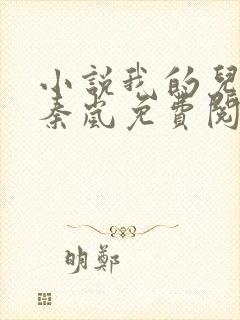 小説我的兒
秦嵐免費閱
明鄭